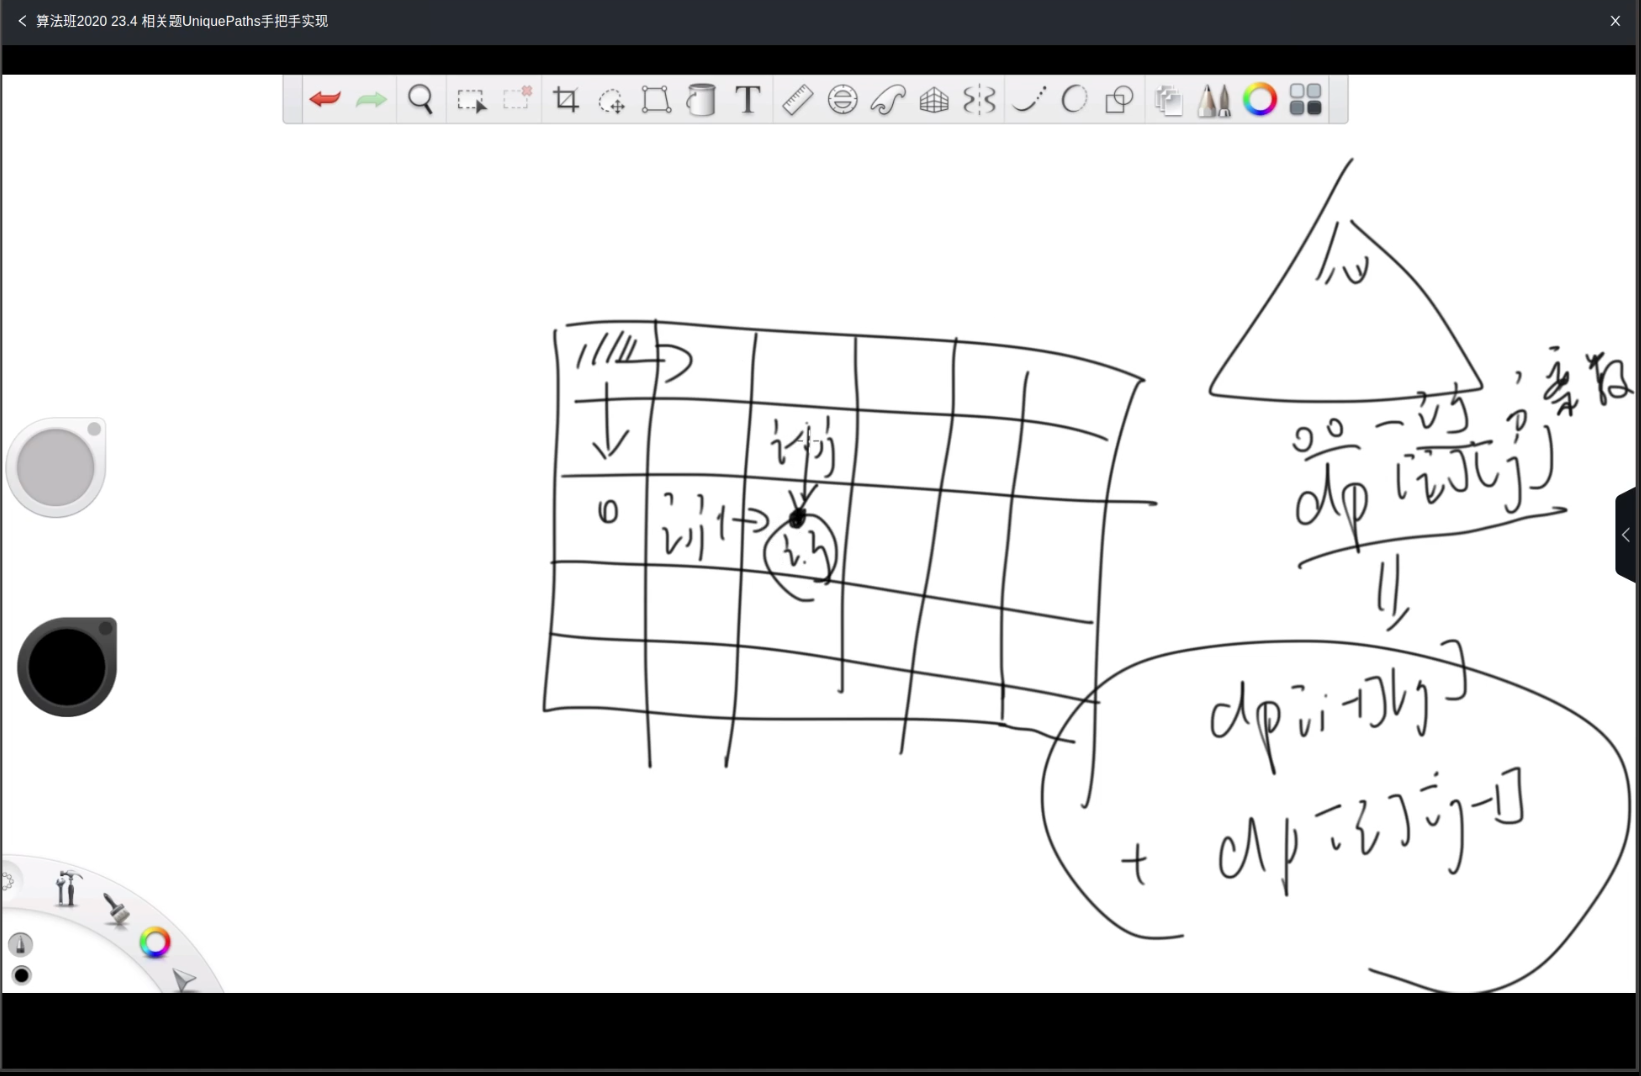 算法班2020 23.4 相关题UniquePaths手把手实现
T
i-1,j
0
i,j-1
i,j
00 - ij
dp[i][j]
dp[i-1][j]
+ dp[i][j-1]